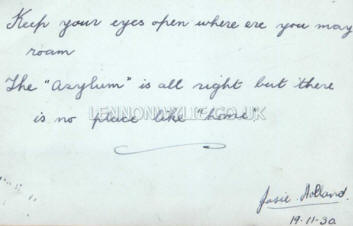 Keep your eyes open where ere you may
roam
The "Asylum" is all right but there
is no place like "home"
LENNONWYLIE.CO.UK
Josie Holland.
19-11-30